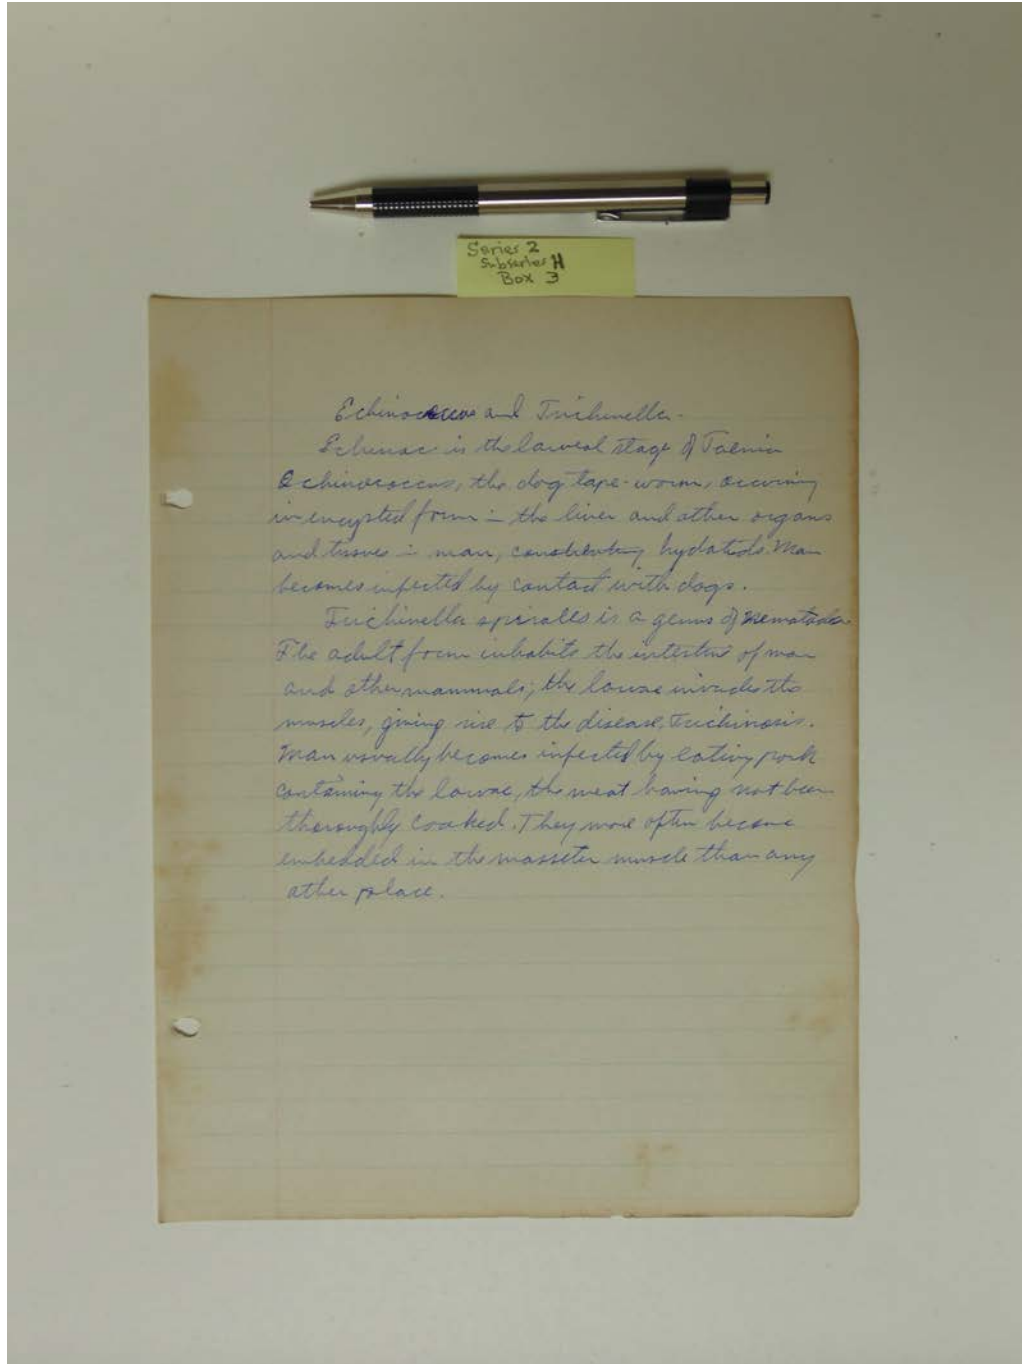 Series 2
Subseries H
Box 3
Echinococcus and Trichinella.
Echinoc is the larval stage of Taenia
Echinococcus, the dog tape-worm, occuring
in encysted form in the liver and other organs
and tissues in man, constituting hydatids. Man
becomes infected by contact with dogs.
Trichinella spirales is a genus of Nematoda.
The adult form inhabits the intestine of man
and other mammals; the larvae invade the
muscles, giving rise to the disease, trichinosis.
Man usually becomes infected by eating pork
containing the larvae, the meat having not been
thoroughly cooked. They more often become
embedded in the masseter muscle than any
other place.